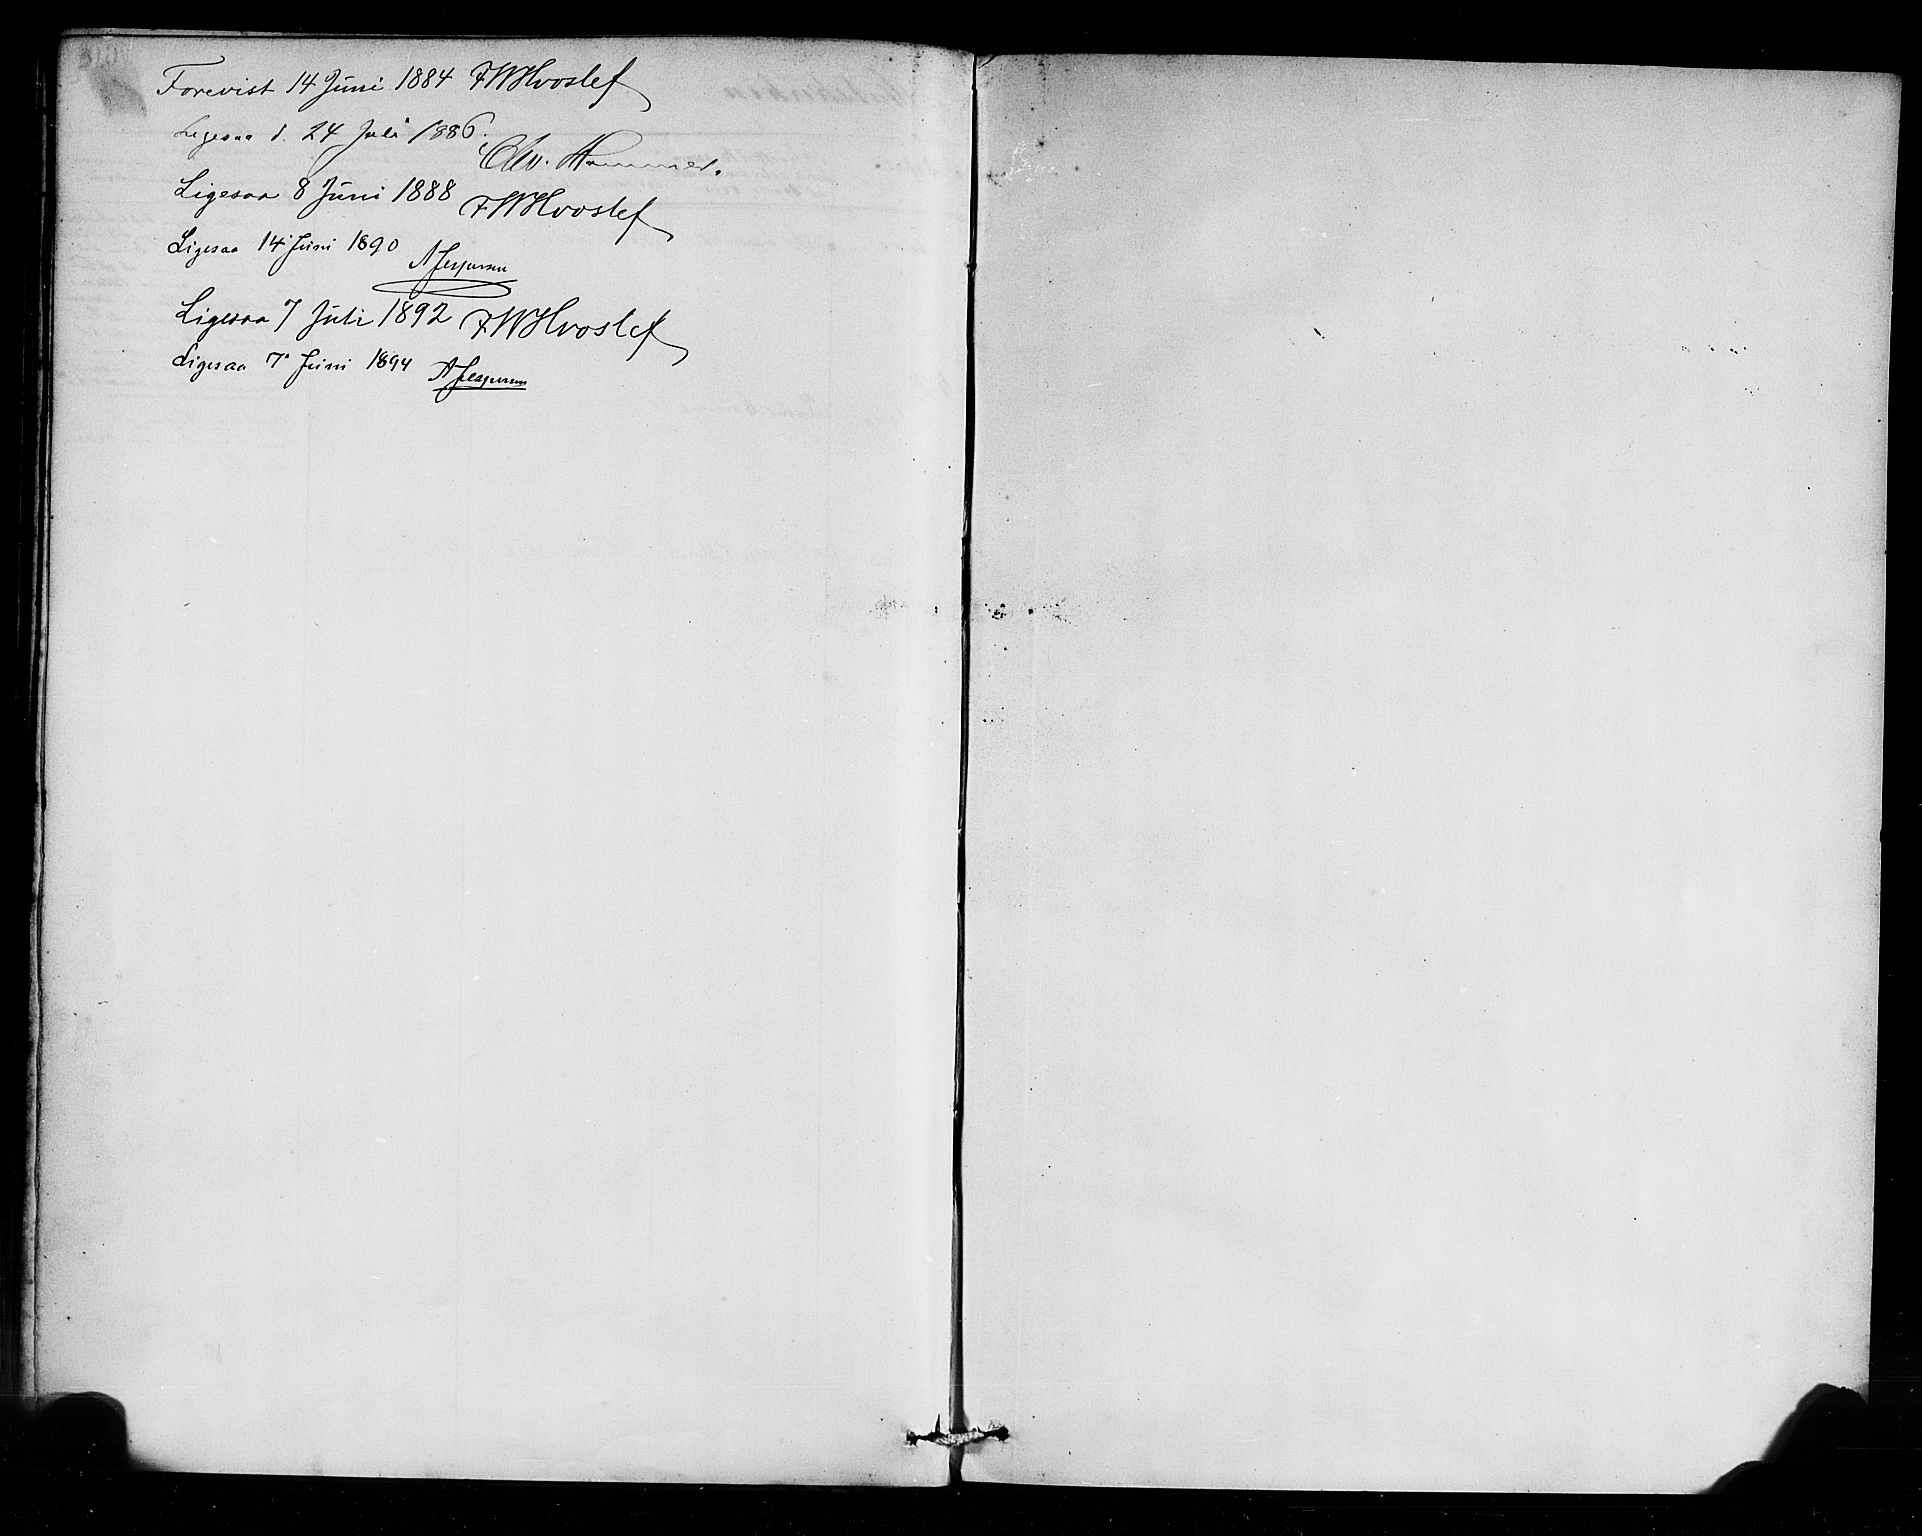 Forevist 14 Juni 1884 FWHvoslef
Ligesaa d. 24 Juli 1886.
Chr. Hammer.
Ligesaa 8 Juni 1888 FWHvoslef
Ligesaa 14 Juni 1890
AJespersen
Ligesaa 7 Juli 1892 FWHvoslef
Ligesaa 7' Juni 1894 AJespersen